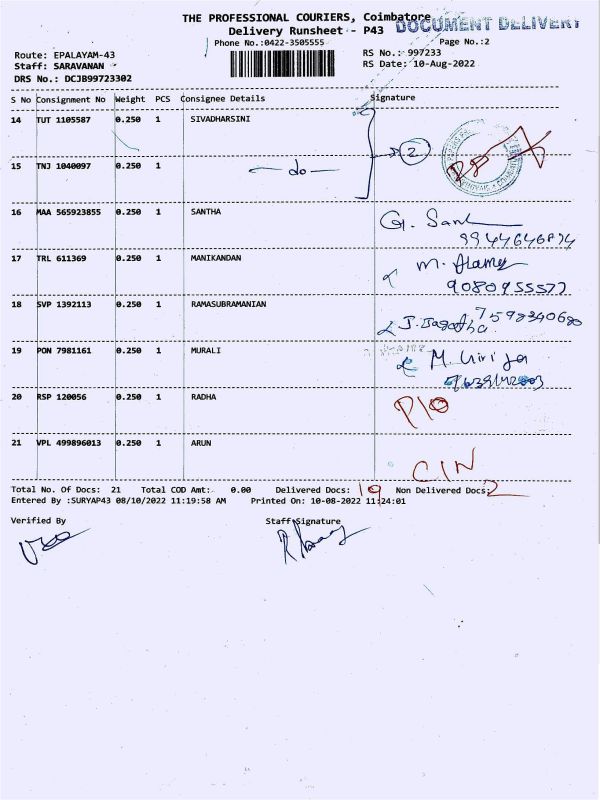 THE PROFESSIONAL COURIERS, Coimbatore
DOCUMENT DELIVERY
Delivery Runsheet - P43
Phone No.:0422-3505555
Page No.:2
Route: EPALAYAM-43
RS No.: 997233
Staff: SARAVANAN
RS Date: 10-Aug-2022
DRS No.: DCJB99723302
S No Consignment No Weight PCS Consignee Details Signature
14 TUT 1105587 0.250 1 SIVADHARSINI
2
15 TNJ 1040097 0.250 1 do
16 MAA 565923855 0.250 1 SANTHA
17 TRL 611369 0.250 1 MANIKANDAN
9080955577
18 SVP 1392113 0.250 1 RAMASUBRAMANIAN 7598340680
19 PON 7981161 0.250 1 MURALI
20 RSP 120056 0.250 1 RADHA P/O
21 VPL 499896013 0.250 1 ARUN C/N
Total No. Of Docs: 21 Total COD Amt: 0.00 Delivered Docs: 19 Non Delivered Docs: 2
Entered By :SURYAP43 08/10/2022 11:19:58 AM Printed On: 10-08-2022 11:24:01
Verified By Staff Signature